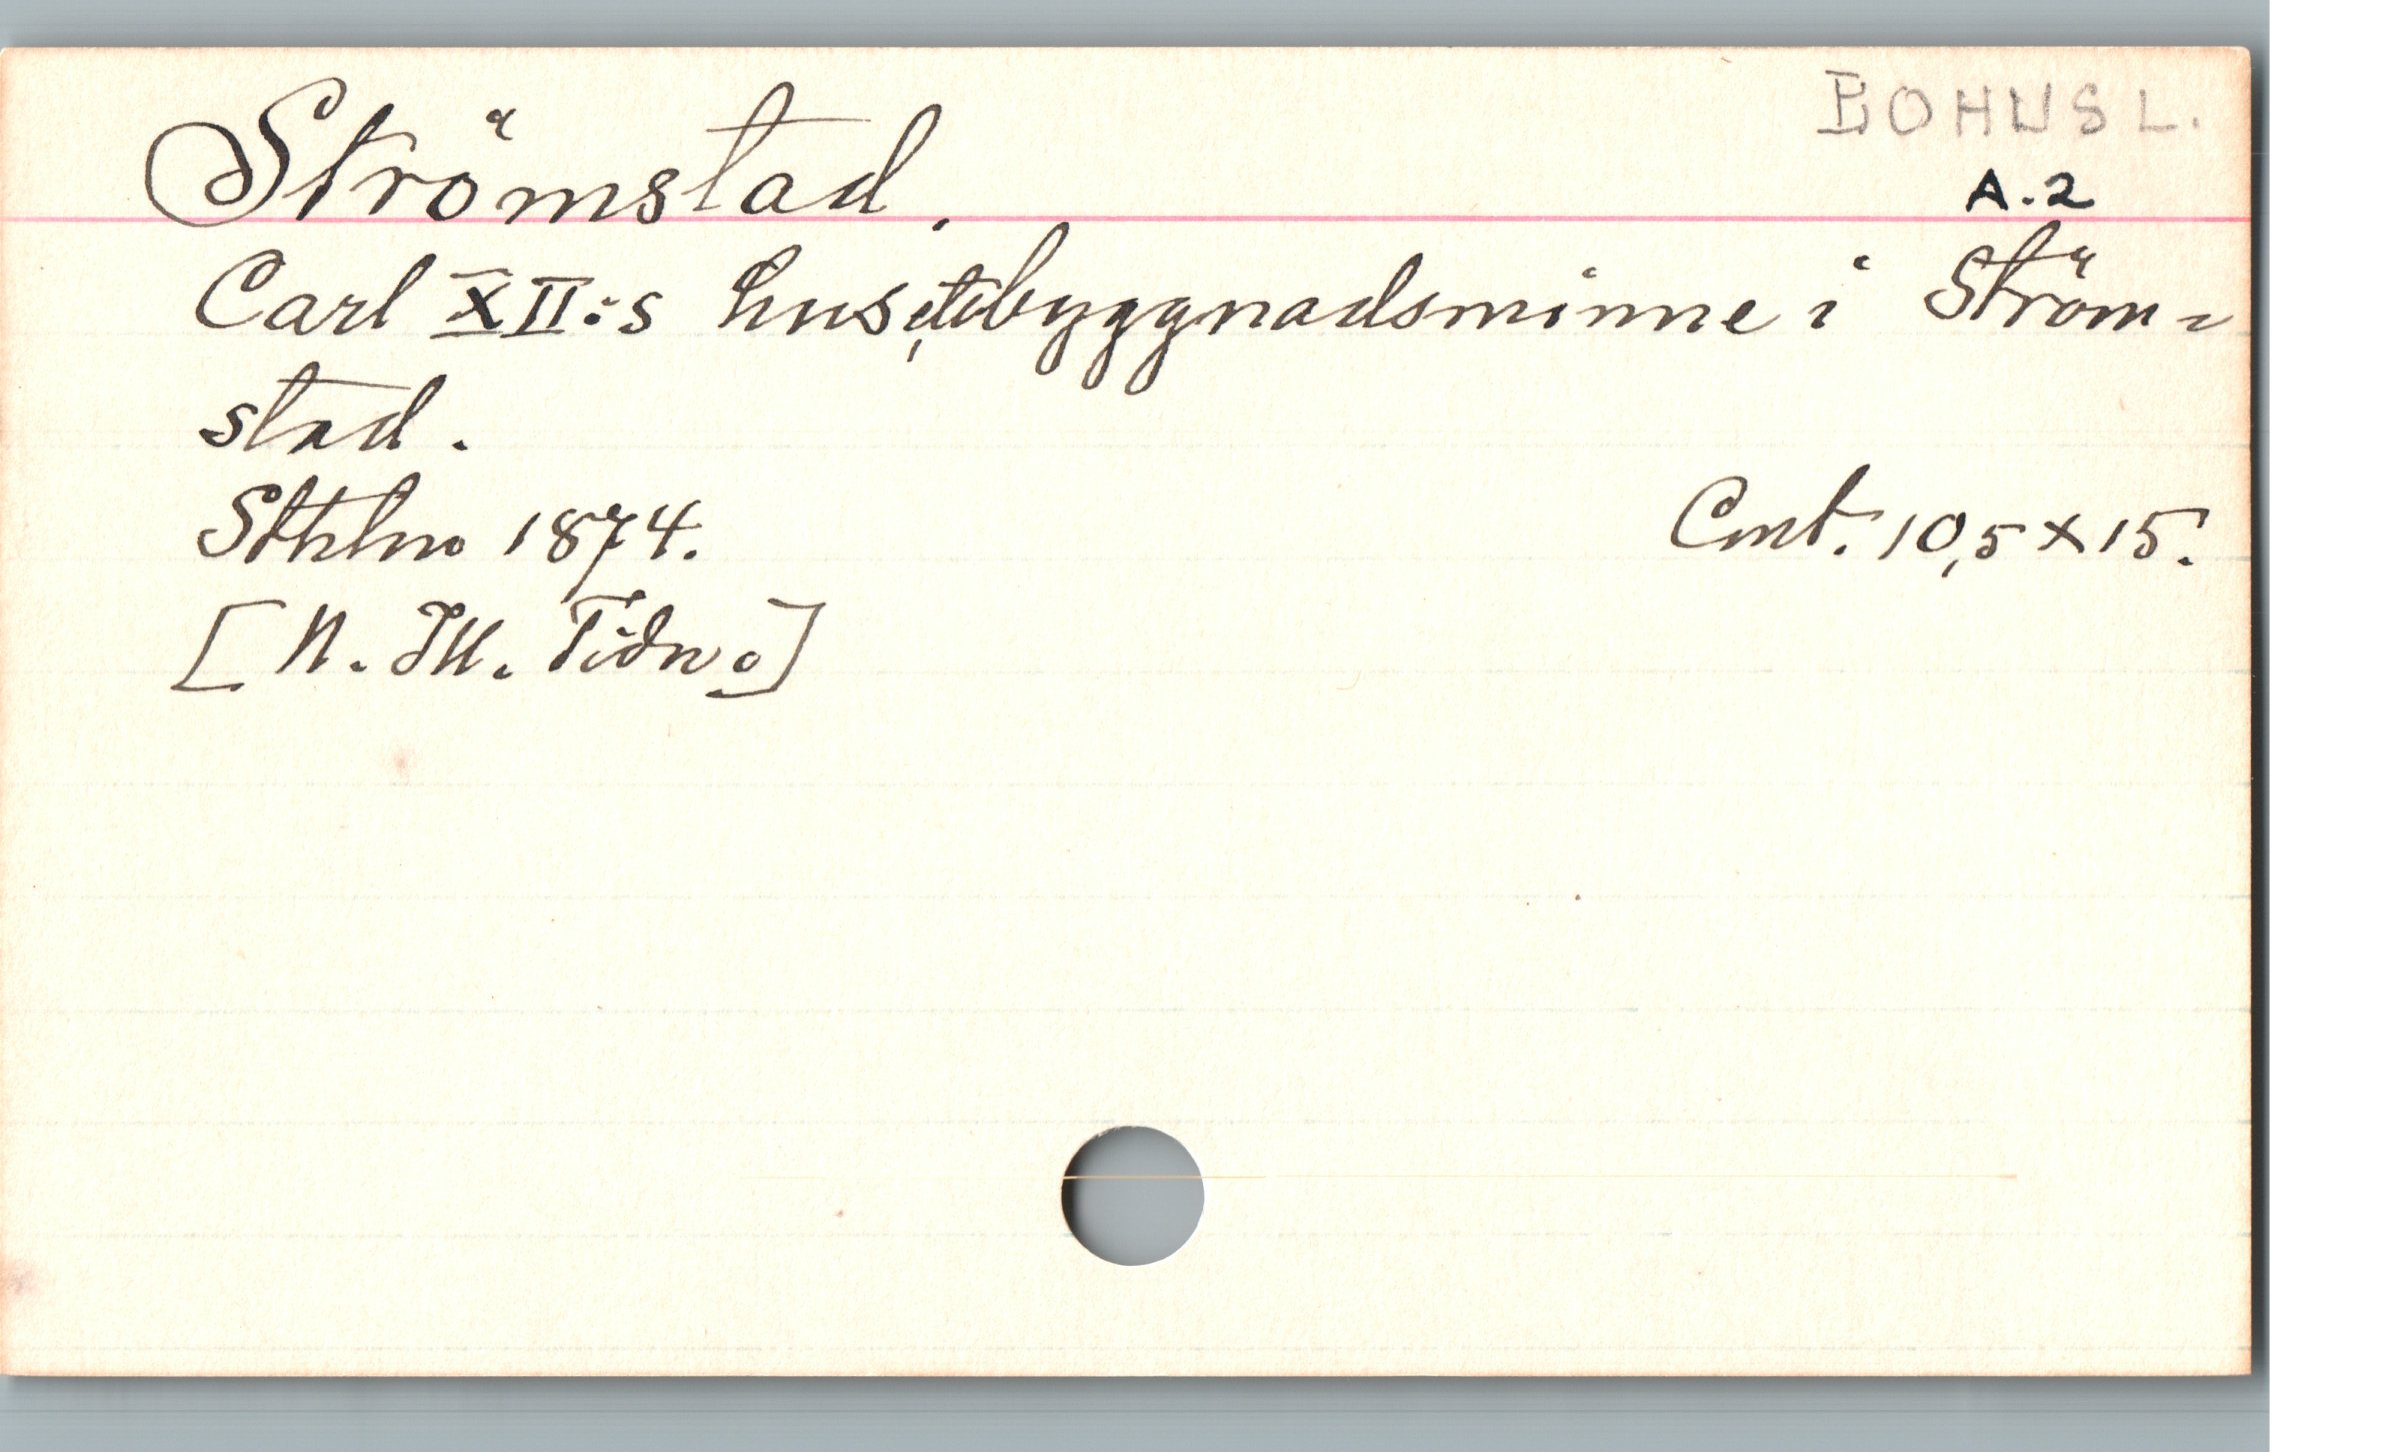 BOHUSL.
Strömstad.
A.2
Carl XII:s hus, ett byggnadsminne i Ström-
stad.
Sthlm 1874.
Cmt. 10,5 x 15.
[N. Ill. Tidn.]